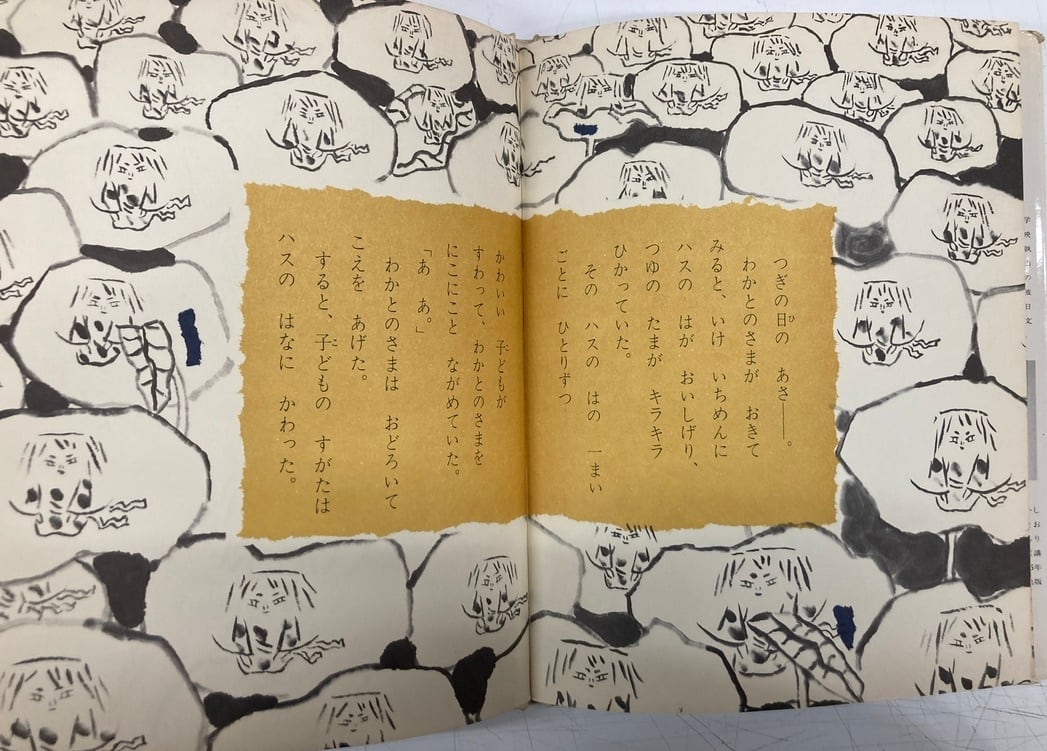 つぎの日の　あさ――。
わかとのさまが　おきて
みると、いけ　いちめんに
ハスの　はが　おいしげり、
つゆの　たまが　キラキラ
ひかっていた。
その　ハスの　はの　一まい
ごとに　ひとりずつ
かわいい　子どもが
すわって、わかとのさまを
にこにこと　ながめていた。
「あ　あ。」
わかとのさまは　おどろいて
こえを　あげた。
すると、子どもの　すがたは
ハスの　はなに　かわった。